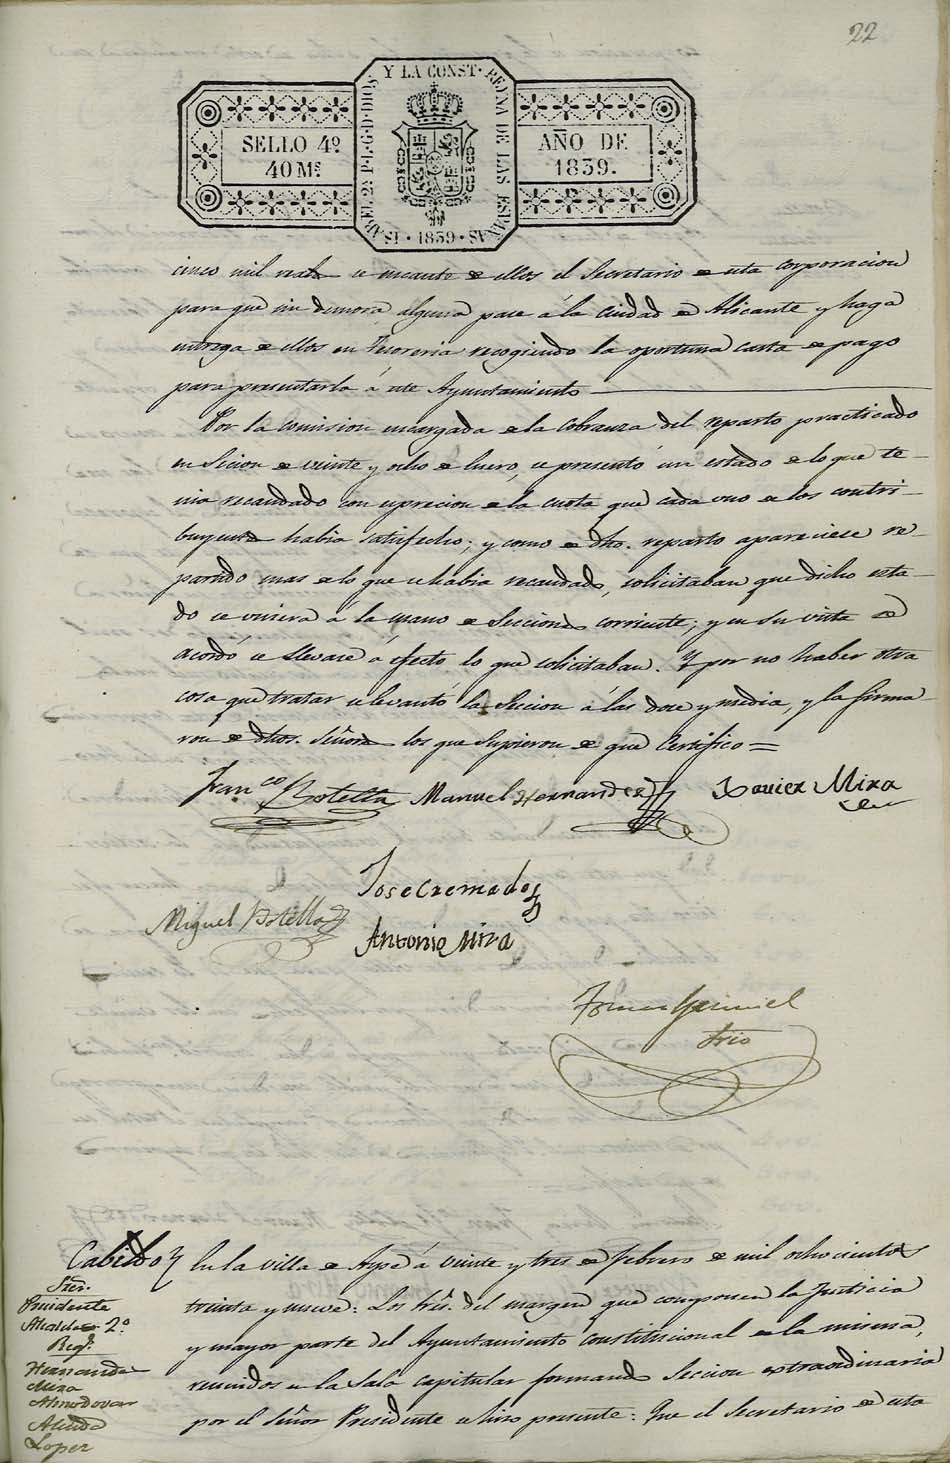 22
SELLO 4º
40 Ms
ISABEL 2ª P·L·G·D·DIOS Y LA CONST· REYNA DE LAS ESPAÑAS · 1839 ·
AÑO DE
1839.
cinco mil reales se incaute de ellos el Secretario de esta corporacion
para que sin demora alguna pase á la Ciudad de Alicante y haga
entrega de ellos en Tesoreria recogiendo la oportuna carta de pago
para presentarla á este Ayuntamiento
Por la Comision encargada de la Cobranza del reparto practicado
en Secion de veinte y ocho de Enero, se presentó un estado de lo que te-
nia recaudado con espresion de la cuota que cada uno de los contri-
buyentes habia satisfecho; y como de dho. reparto apareciese re-
partido mas de lo que se habia recaudado, solicitaban que dicho esta-
do se uniera á la mano de Secciones corriente; y en su vista se
acordó se llevase á efecto lo que solicitaban. Y por no haber otra
cosa que tratar se levantó la Seccion á las doce y media, y la firma-
ron de dhos. Señores los que supieron de que Certifico =
Franco Botella Manuel Hernandez Xavier Mira
Jose Cremades
Miguel Botella
Antonio Mira
Tomas
Srio
Cabildo En la villa de Aspe á veinte y tres de Febrero de mil ochocientos
Sres.
Presidente
Alcalde 2º
Regs.
Hernandez
Mira
Almodovar
Alcaide
Lopez
treinta y nueve: Los Sres. del margen que componen la Justicia
y mayor parte del Ayuntamiento Constitucional de la misma,
reunidos en la Sala capitular formando Seccion extraordinaria
por el Señor Presidente se hizo presente: Que el Secretario de esta